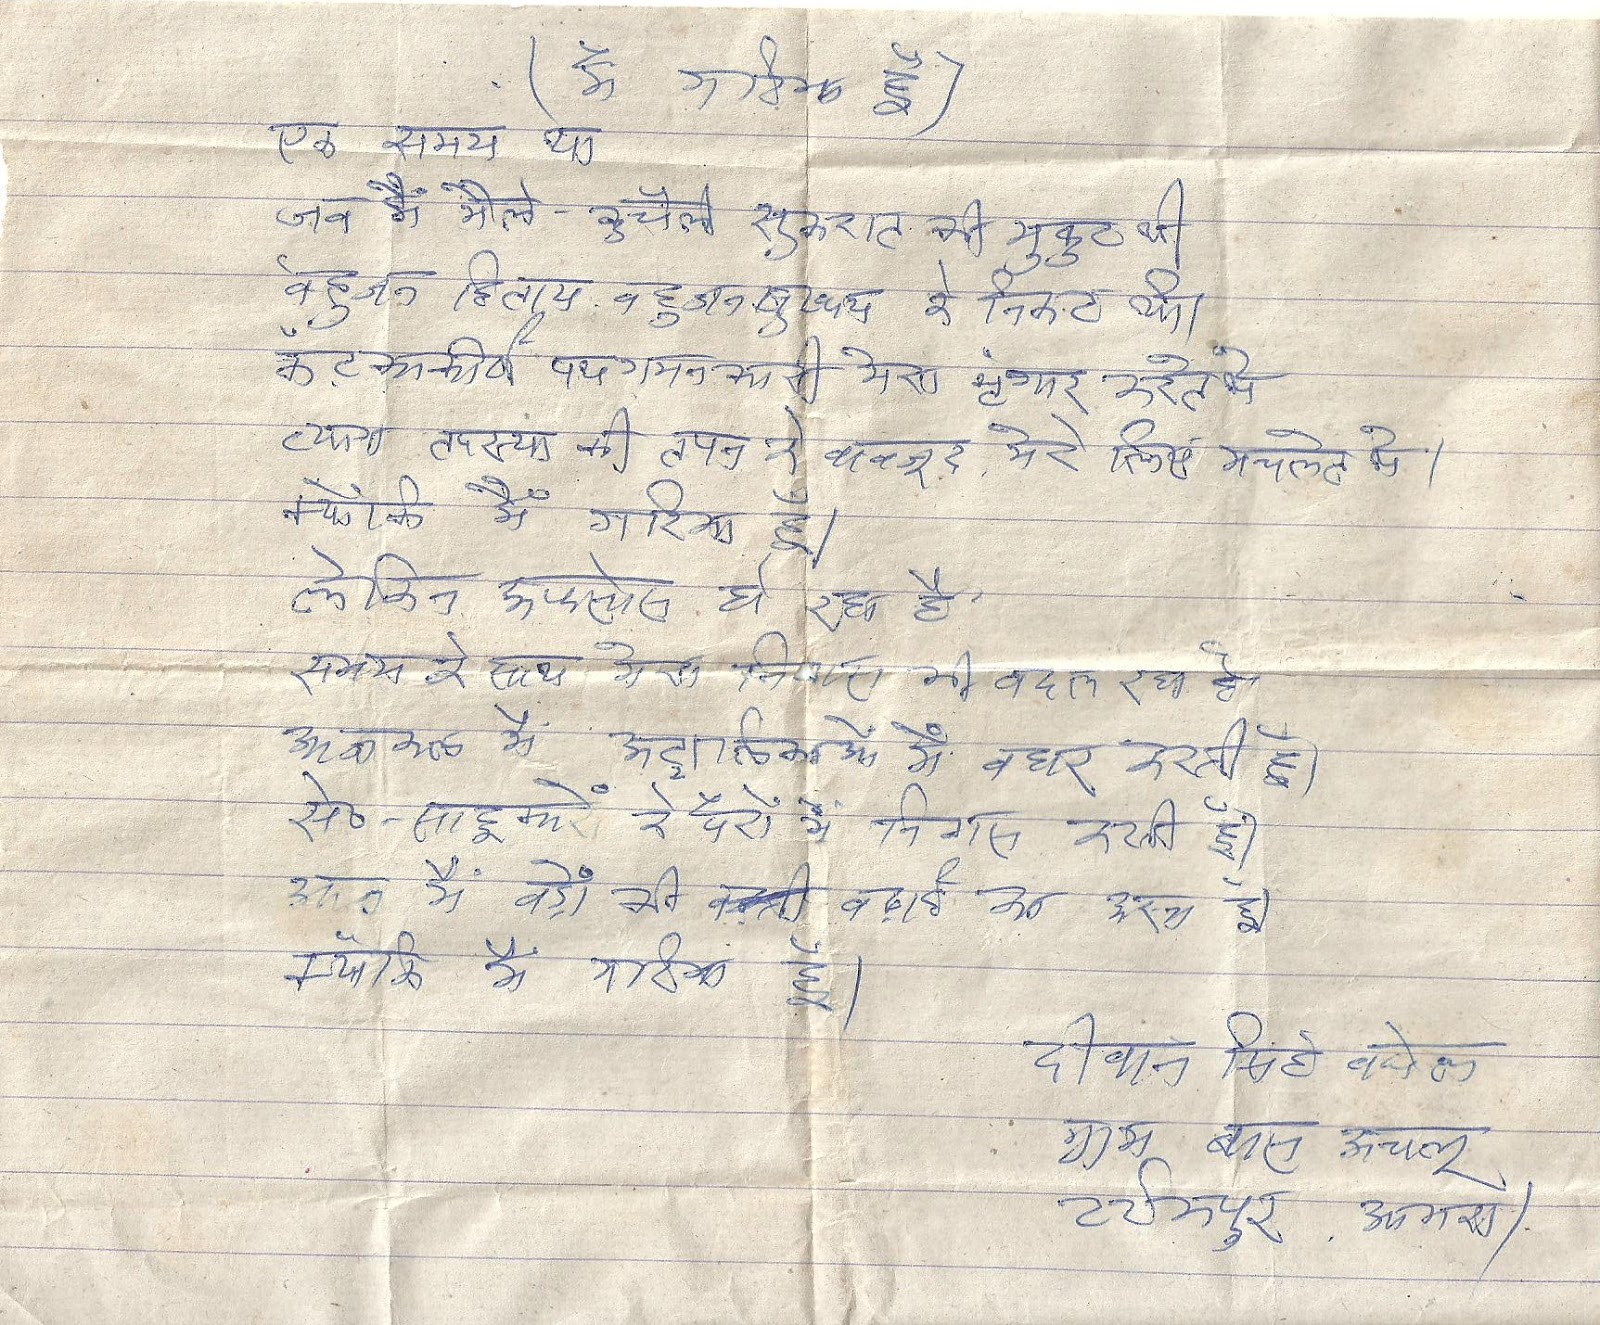 (मैं गरिमा हूँ)
एक समय था
जब मैं मैले-कुचैले सुकरात की मुकुट थी
बहुजन हिताय बहुजन सुखाय के निकट थी।
कंटकाकीर्ण पथ गमनकारी मेरा श्रृंगार करते थे
त्याग तपस्या की तपन के बावजूद मेरे लिए मचलते थे।
क्योंकि मैं गरिमा हूँ।
लेकिन अफसोस हो रहा है
समय के साथ मेरा निवास भी बदल रहा है
आजकल मैं अट्टालिकाओं में बहार करती हूँ।
सेठ-साहूकारों के पैरों में निवास करती हूँ।
आज मैं बड़ों की बढ़ाई का अस्त्र हूँ।
क्योंकि मैं गरिमा हूँ।
दीवान सिंह बघेल
ग्राम बास अचलू
आगरा।